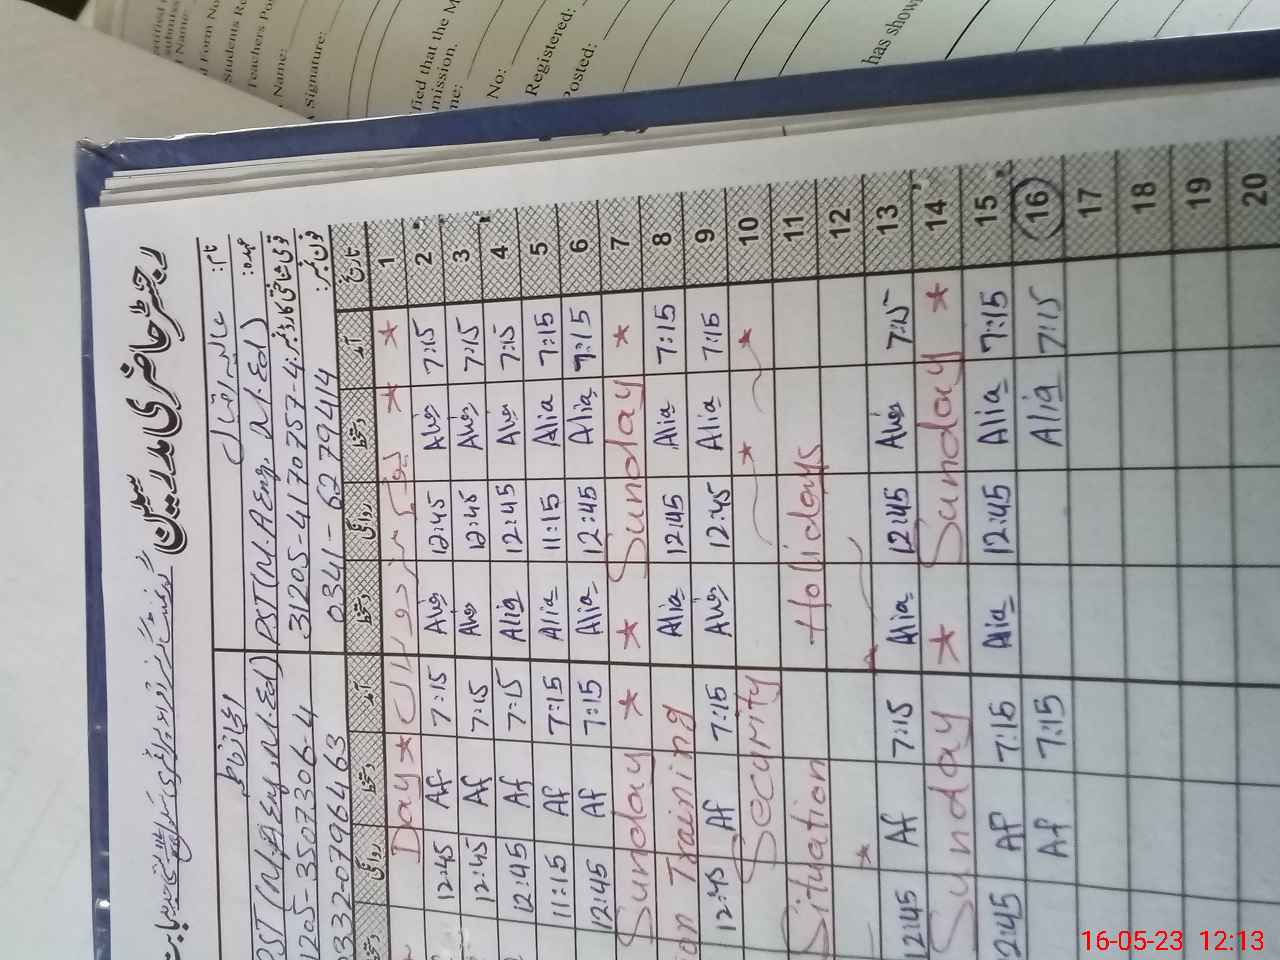 Name:
Form No
Students Re
Teachers Pos
Name:
Signature:
fied that the M
mission.
me:
No:
Registered:
Posted:
has shown
رجسٹر حاضری مدرسین
نام: عالیہ اقبال
عہدہ: PST (M.A Eng. M.Ed)
قومی شناختی کارڈ نمبر: 31205-4170757-4
فون نمبر: 0341-6279414
PST (M.A Eng, M.Ed)
1205-3507306-4
0332-0796463
تاریخ آمد دستخط روانگی دستخط آمد دستخط روانگی دستخط
1 ★ ★ یوم مزدوراں Day ★
2 7:15 Alia 12:45 Alia 7:15 Af 12:45
3 7:15 Alia 12:45 Alia 7:15 Af 12:45
4 7:15 Alia 12:45 Alia 7:15 Af 12:45
5 7:15 Alia 11:15 Alia 7:15 Af 11:15
6 7:15 Alia 12:45 Alia 7:15 Af 12:45
7 ★ Sunday ★ ★ Sunday
8 7:15 Alia 12:45 Alia on Training
9 7:15 Alia 12:45 Alia 7:15 Af 12:45
10 ★ ★ Security
11 Hollidays Situation
12
13 7:15 Alia 12:45 Alia 7:15 Af 12:45
14 ★ Sunday ★ Sunday
15 7:15 Alia 12:45 Alia 7:15 Af 12:45
16 7:15 Alia 7:15 Af
17
18
19
20
16-05-23 12:13